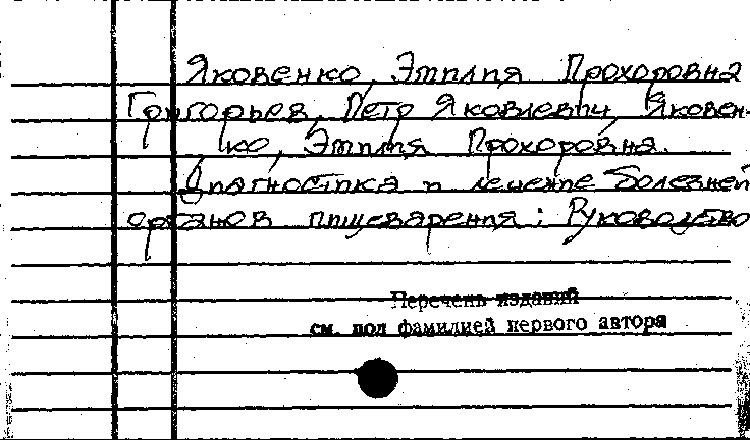 Яковенко, Эмилия Прохоровна
Григорьев, Петр Яковлевич, Яковен-
ко, Эмилия Прохоровна.
Диагностика и лечение болезней
органов пищеварения: Руководство
Перечень изданий
см. под фамилией первого автора